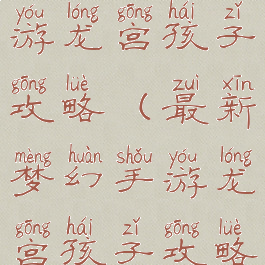 yóu lóng gōng hái zǐ
游龙宫孩子
gōng lüè zuì xīn
攻略（最新
mèng huàn shǒu yóu lóng
梦幻手游龙
gōng hái zǐ gōng lüè
宫孩子攻略